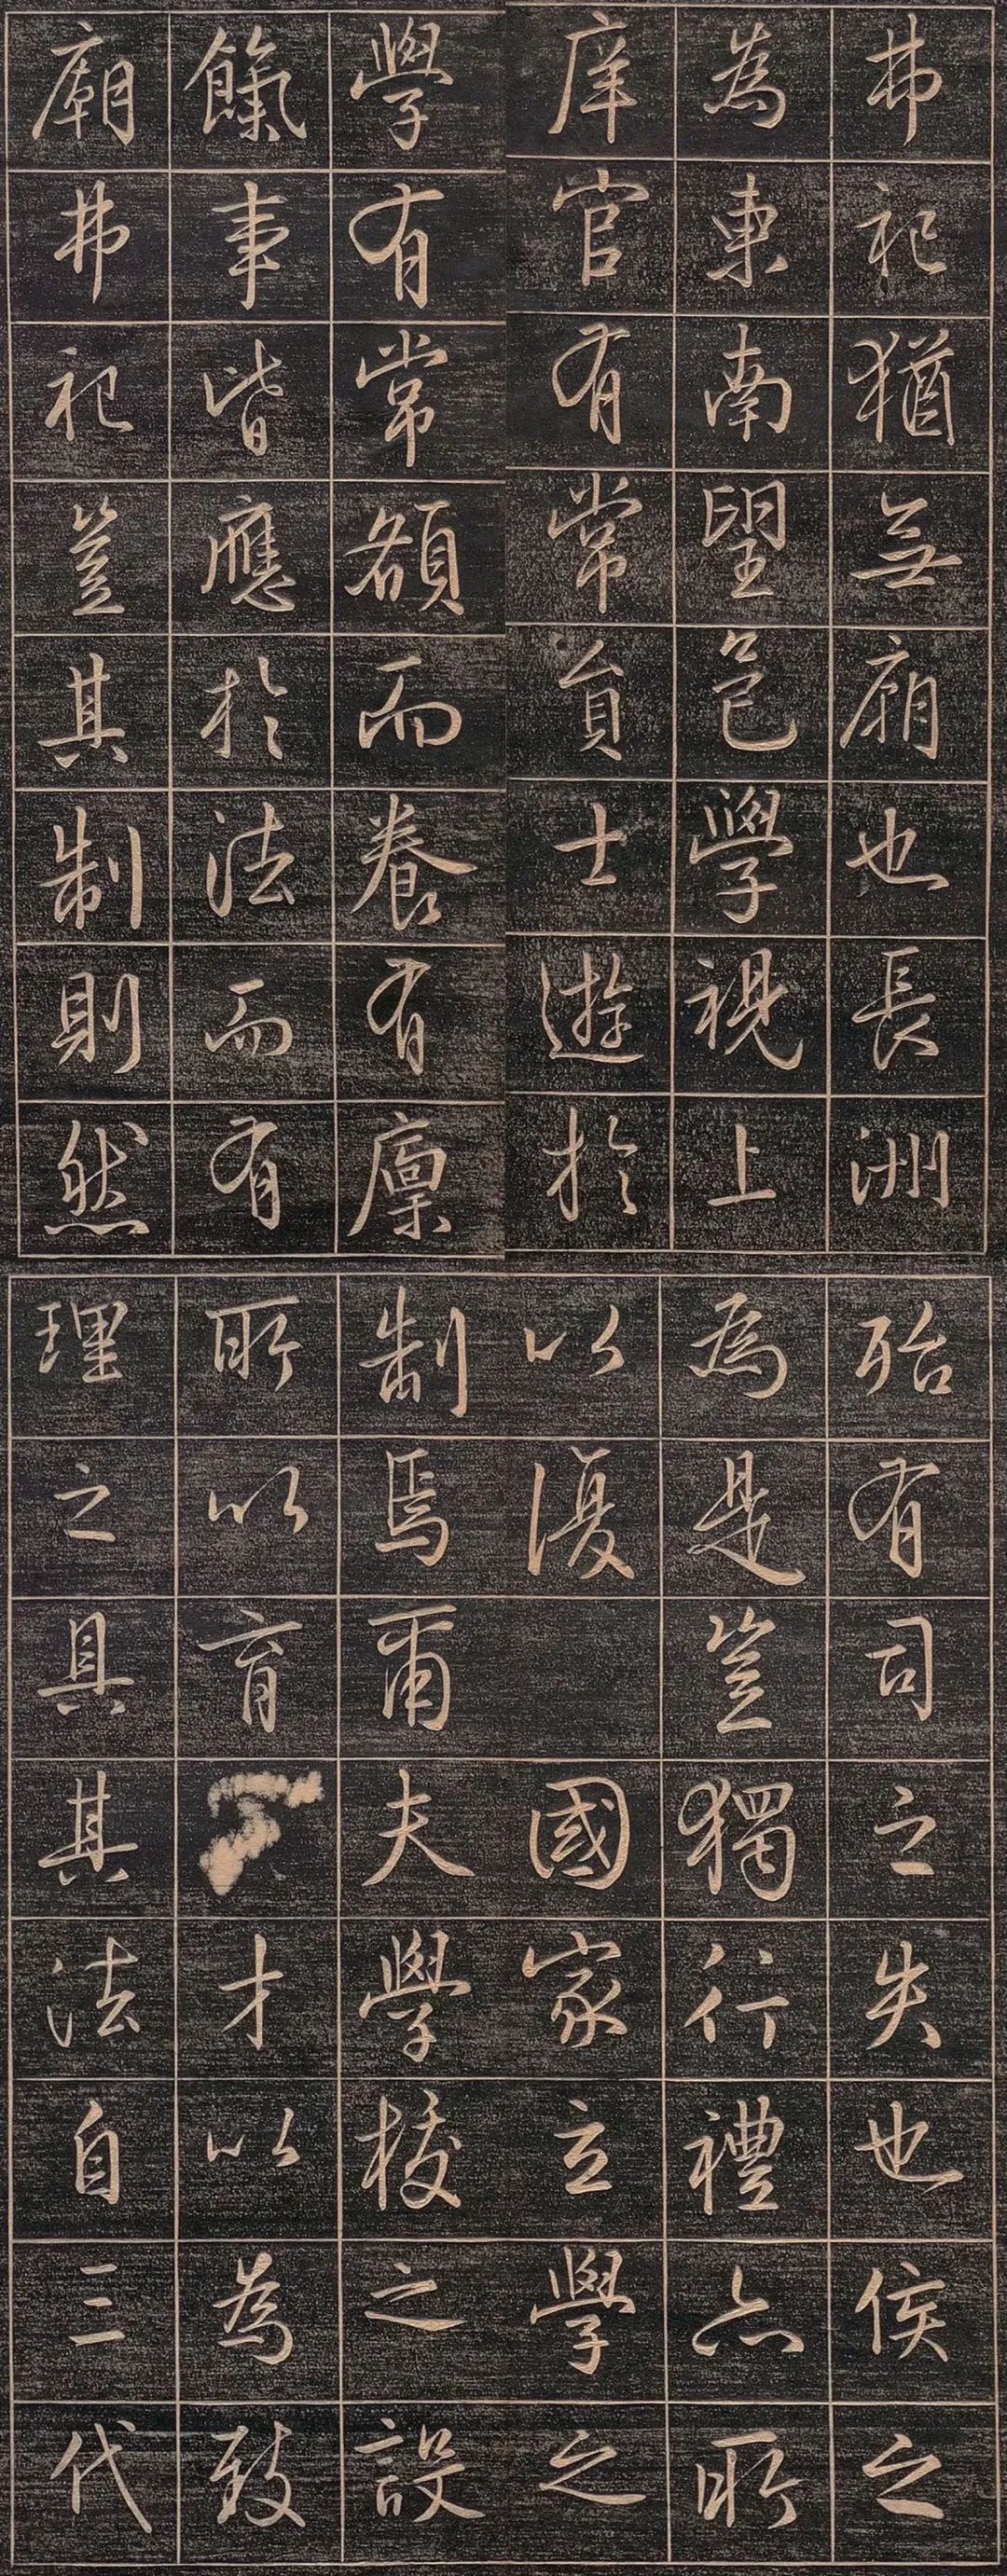 弗祀猶無廟也長洲
為東南望邑學視上
庠官有常貟士遊於
學有常額而養有廩
餼事皆應於法而有
廟弗祀豈其制則然
殆有司之失也侯之
為是豈獨行禮亦所
以復 國家立學之
制焉爾夫學校之設
所以育 才以為致
理之具其法自三代